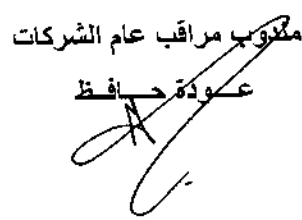 مندوب مراقب عام الشركات
عودة حافظ